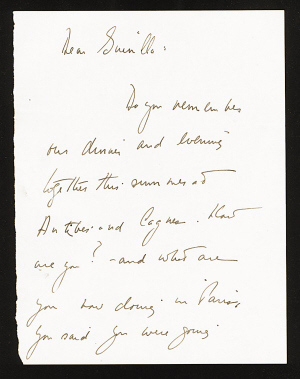 Dear Gunilla:
Do you remember
our dinner and evening
together this summer at
Antibes and Cagnes. How
are you? - and what are
you now doing in Paris,
you said you were going